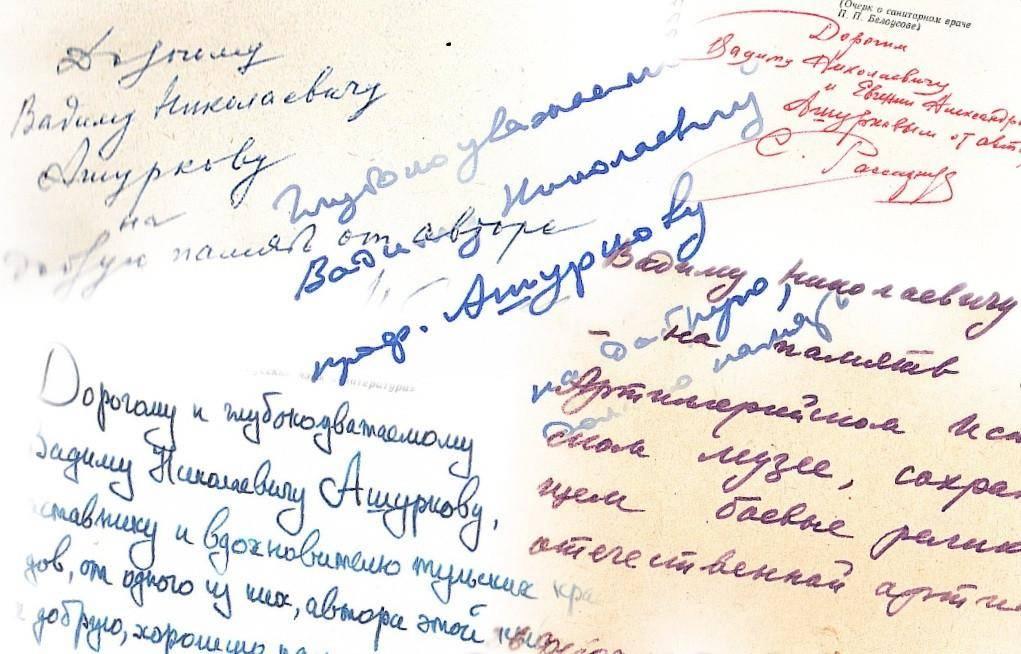 Дорогому
Вадиму Николаевичу
Ашуркову
на
добрую память от автора
Глубокоуважаемому
Вадиму Николаевичу
проф. Ашуркову
на добрую память
(Очерк о санитарном враче
П. П. Белоусове)
Дорогим
Вадиму Николаевичу
и Евгении Александро
Ашурковым от авто
С.
Вадиму Николаевичу
– на память
Артиллерийском Ис
ском музее, сохра
щем боевые релик
отечественной артил
Дорогому и глубокоуважаемому
Вадиму Николаевичу Ашуркову,
ставнику и вдохновителю тульских кра
дов, от одного из них, автора этой кни
добрую, хорошую